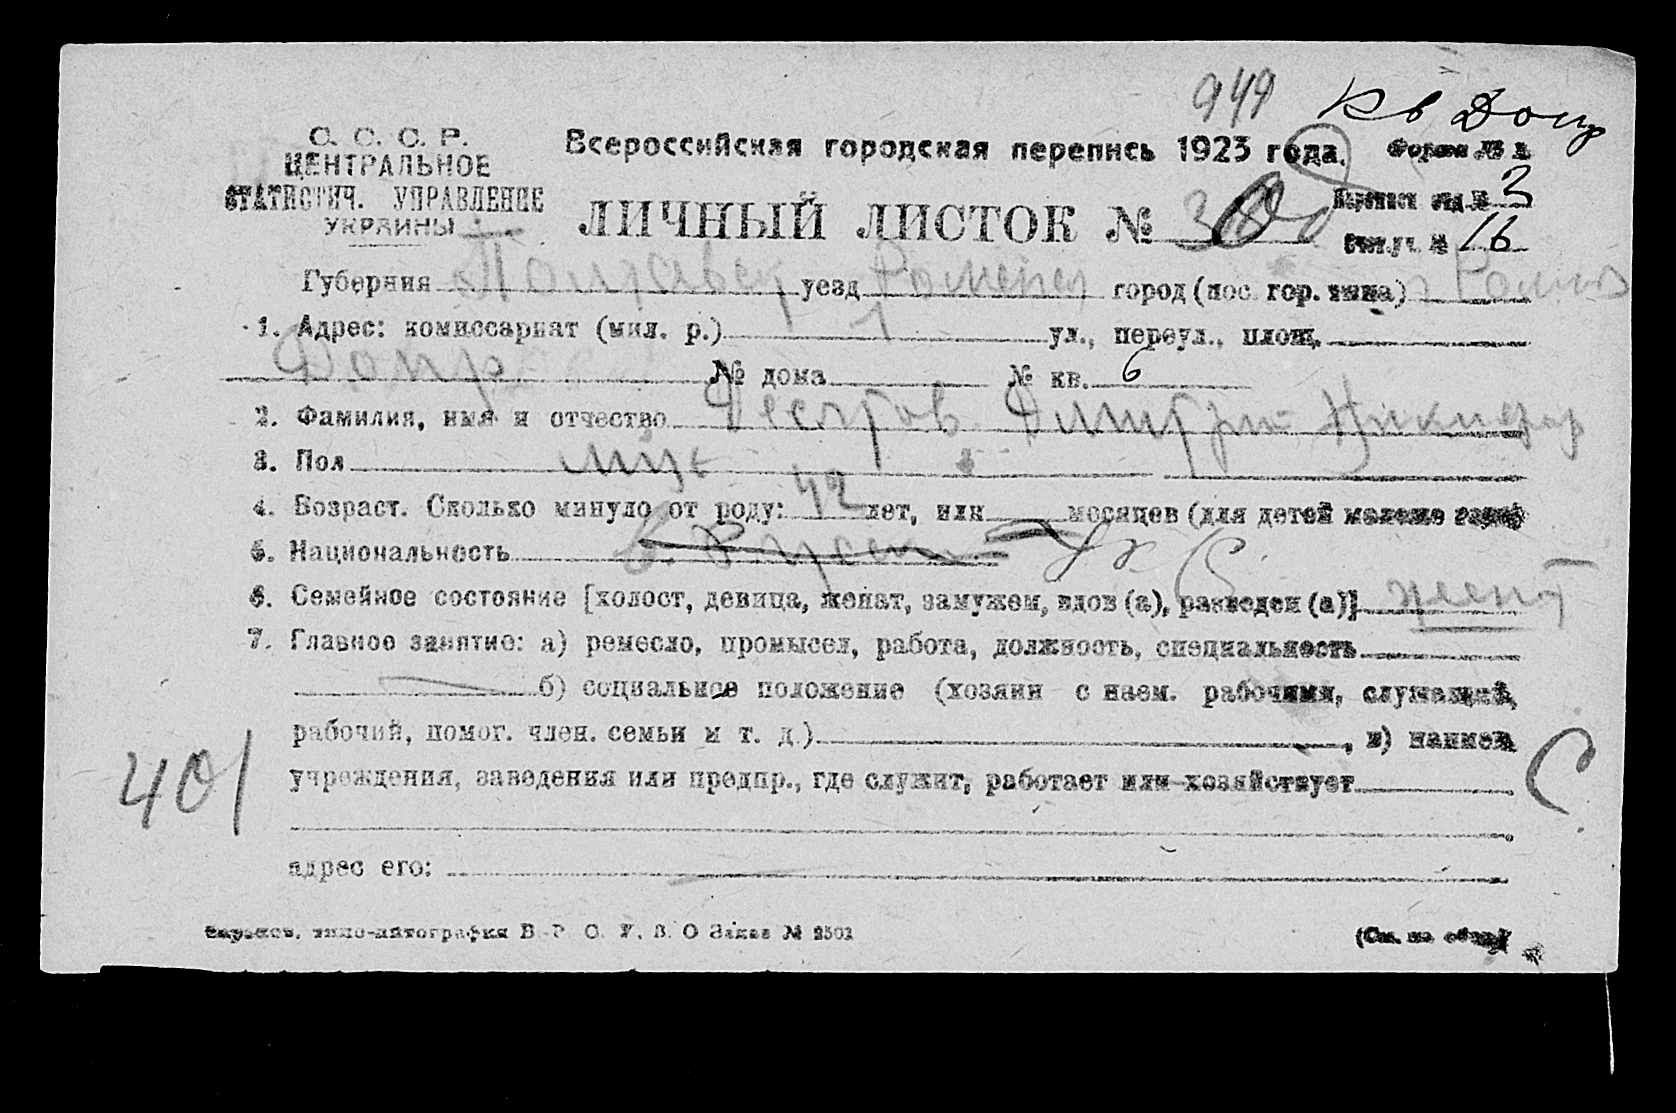 949 Кв Допр
С. С. С. Р.
ЦЕНТРАЛЬНОЕ
СТАТИСТИЧ. УПРАВЛЕНИЕ
УКРАИНЫ
Всероссийская городская перепись 1923 года.
Форма № 1
ЛИЧНЫЙ ЛИСТОК №
отд. № 3
Счетн. уч. № 16
Губерния Полтавск уезд Роменск город (пос. гор. типа) Ромны
1. Адрес: комиссариат (мил. р.) 1 ул., переул., площ.
Допр № дома № кв. 6
2. Фамилия, имя и отчество Дмитрий Никифор
3. Пол муж
4. Возраст. Сколько минуло от роду: 42 лет, или месяцев (для детей моложе года)
5. Национальность
6. Семейное состояние [холост, девица, женат, замужем, вдов (а), разведен (а)] женат
7. Главное занятие: а) ремесло, промысел, работа, должность, специальность
б) социальное положение (хозяин с наем. рабочими, служащий,
рабочий, помог. член. семьи и т. д.) , в) наимен.
учреждения, заведения или предпр., где служит, работает или хозяйствует
401 С
адрес его:
типо-литография В. Р. С. У. З. О Заказ № 2501
(См. на обор.)